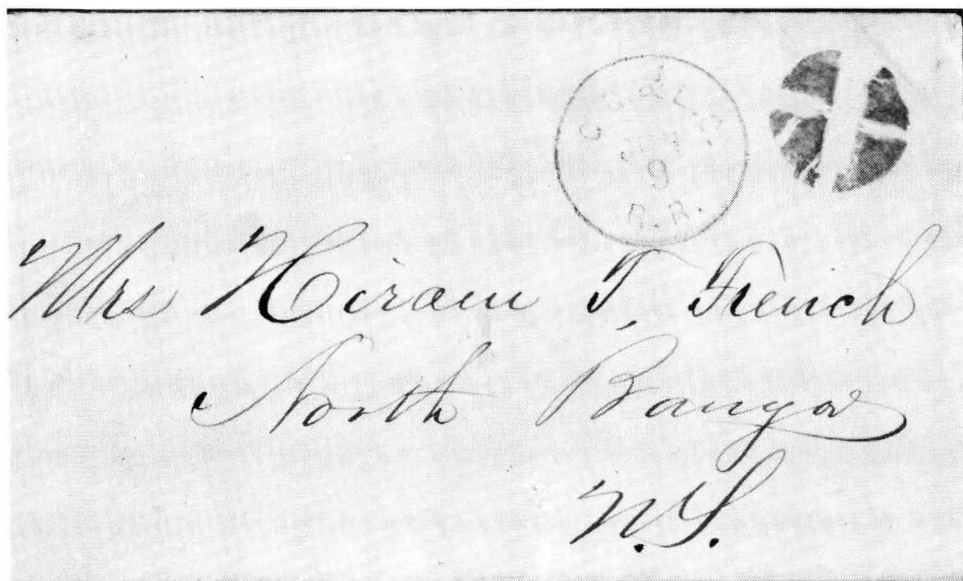 R.R.
Mrs Hiram T. French
North Bangor
N.Y.